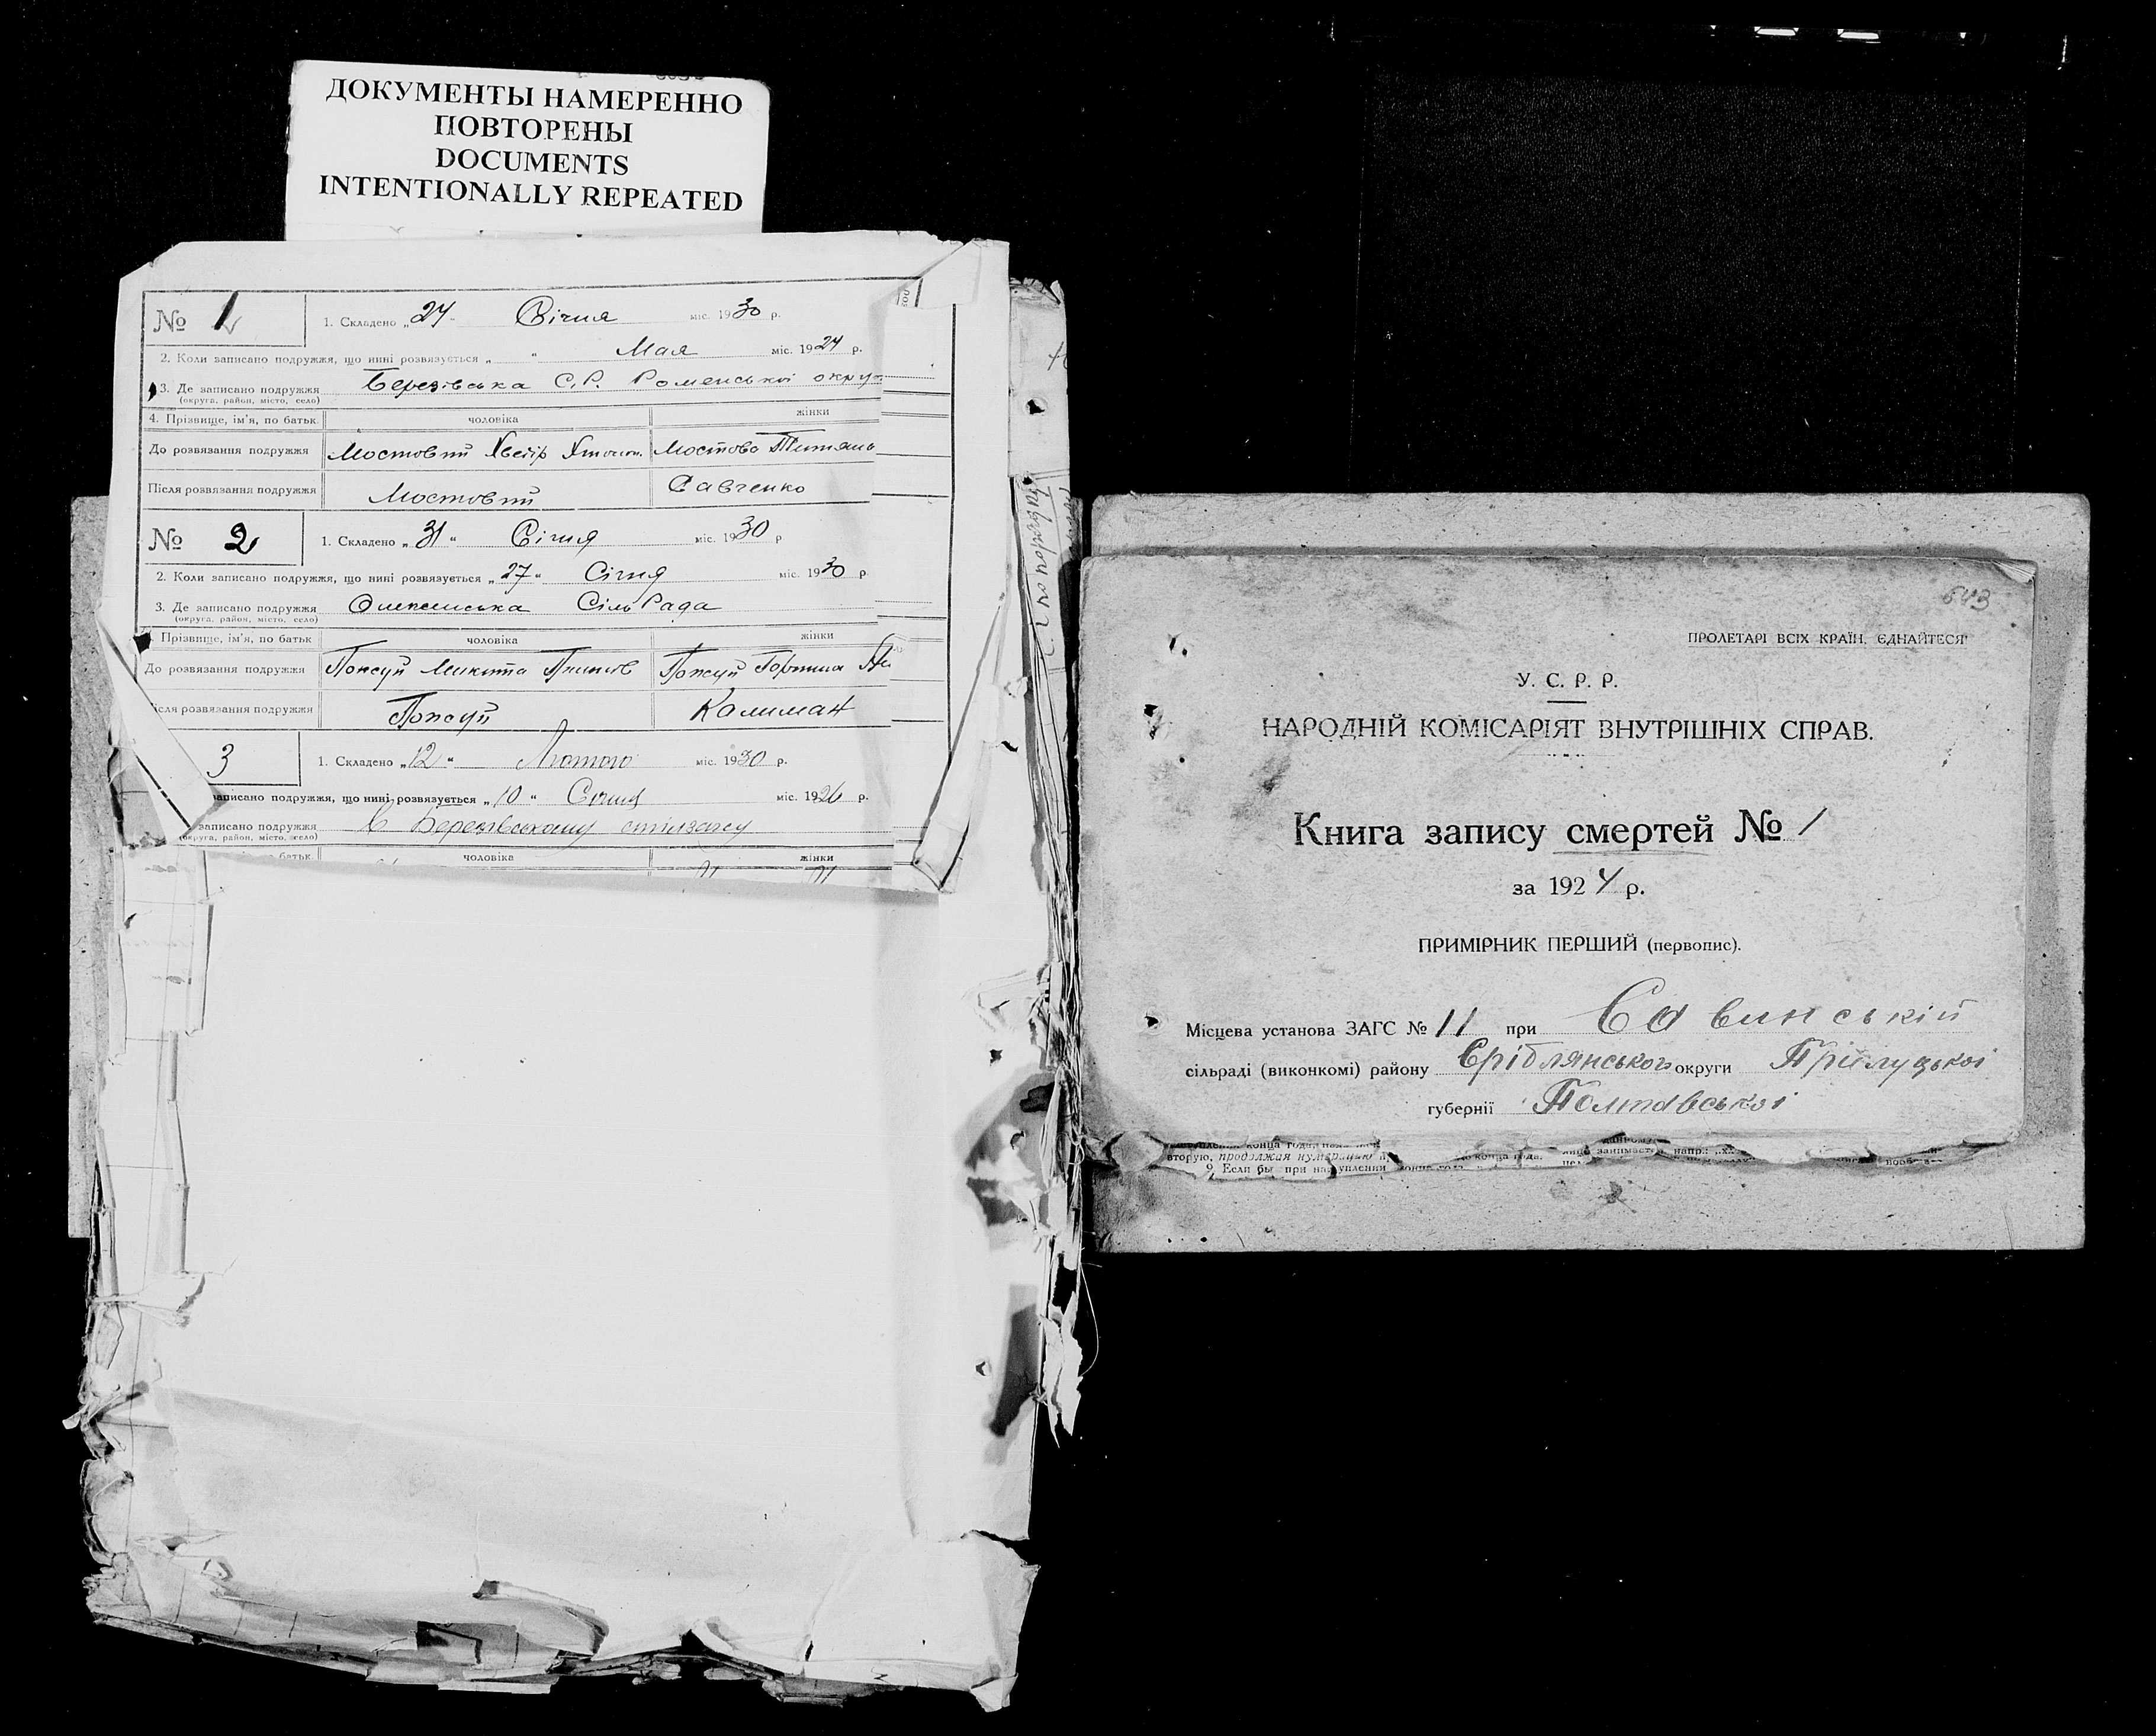 ДОКУМЕНТЫ НАМЕРЕННО
ПОВТОРЕНЫ
DOCUMENTS
INTENTIONALLY REPEATED
№ 1 1. Складено „24“ Січня міс. 1930 р.
2. Коли записано подружжя, що нині розвязується „ “ Мая міс. 1924 р.
3. Де записано подружжя Березівська С.Р. Роменської округ
(округа, район, місто, село)
4. Прізвище, ім'я, по батьк. чоловіка жінки
До розвязання подружжя Мостовий Мостова
Після розвязання подружжя Мостовий Савченко
№ 2 1. Складено „31“ Січня міс. 1930 р
2. Коли записано подружжя, що нині розвязується „27“ Січня міс. 1930 р.
3. Де записано подружжя СільРада
(округа, район, місто, село)
Прізвище, ім'я, по батьк чоловіка жінки
До розвязання подружжя Микита
ісля розвязання подружжя Калиман
3 1. Складено „12“ Лютого міс. 1930 р.
записано подружжя, що нині розвязується „10“ Січня міс. 1926 р.
записано подружжя в Березівському
(округа, район, місто, село)
батьк. чоловіка жінки
643
ПРОЛЕТАРІ ВСІХ КРАЇН, ЄДНАЙТЕСЯ!
У. С. Р. Р.
НАРОДНІЙ КОМІСАРІЯТ ВНУТРІШНІХ СПРАВ.
Книга запису смертей № 1
за 1924 р.
ПРИМІРНИК ПЕРШИЙ (первопис).
Місцева установа ЗАГС № 11 при Савинській
сільраді (виконкомі) району Сріблянського округи Прилуцької
губернії Полтавської
вторую, продолжая нумерацию до конца года.
9. Если бы при наступлении